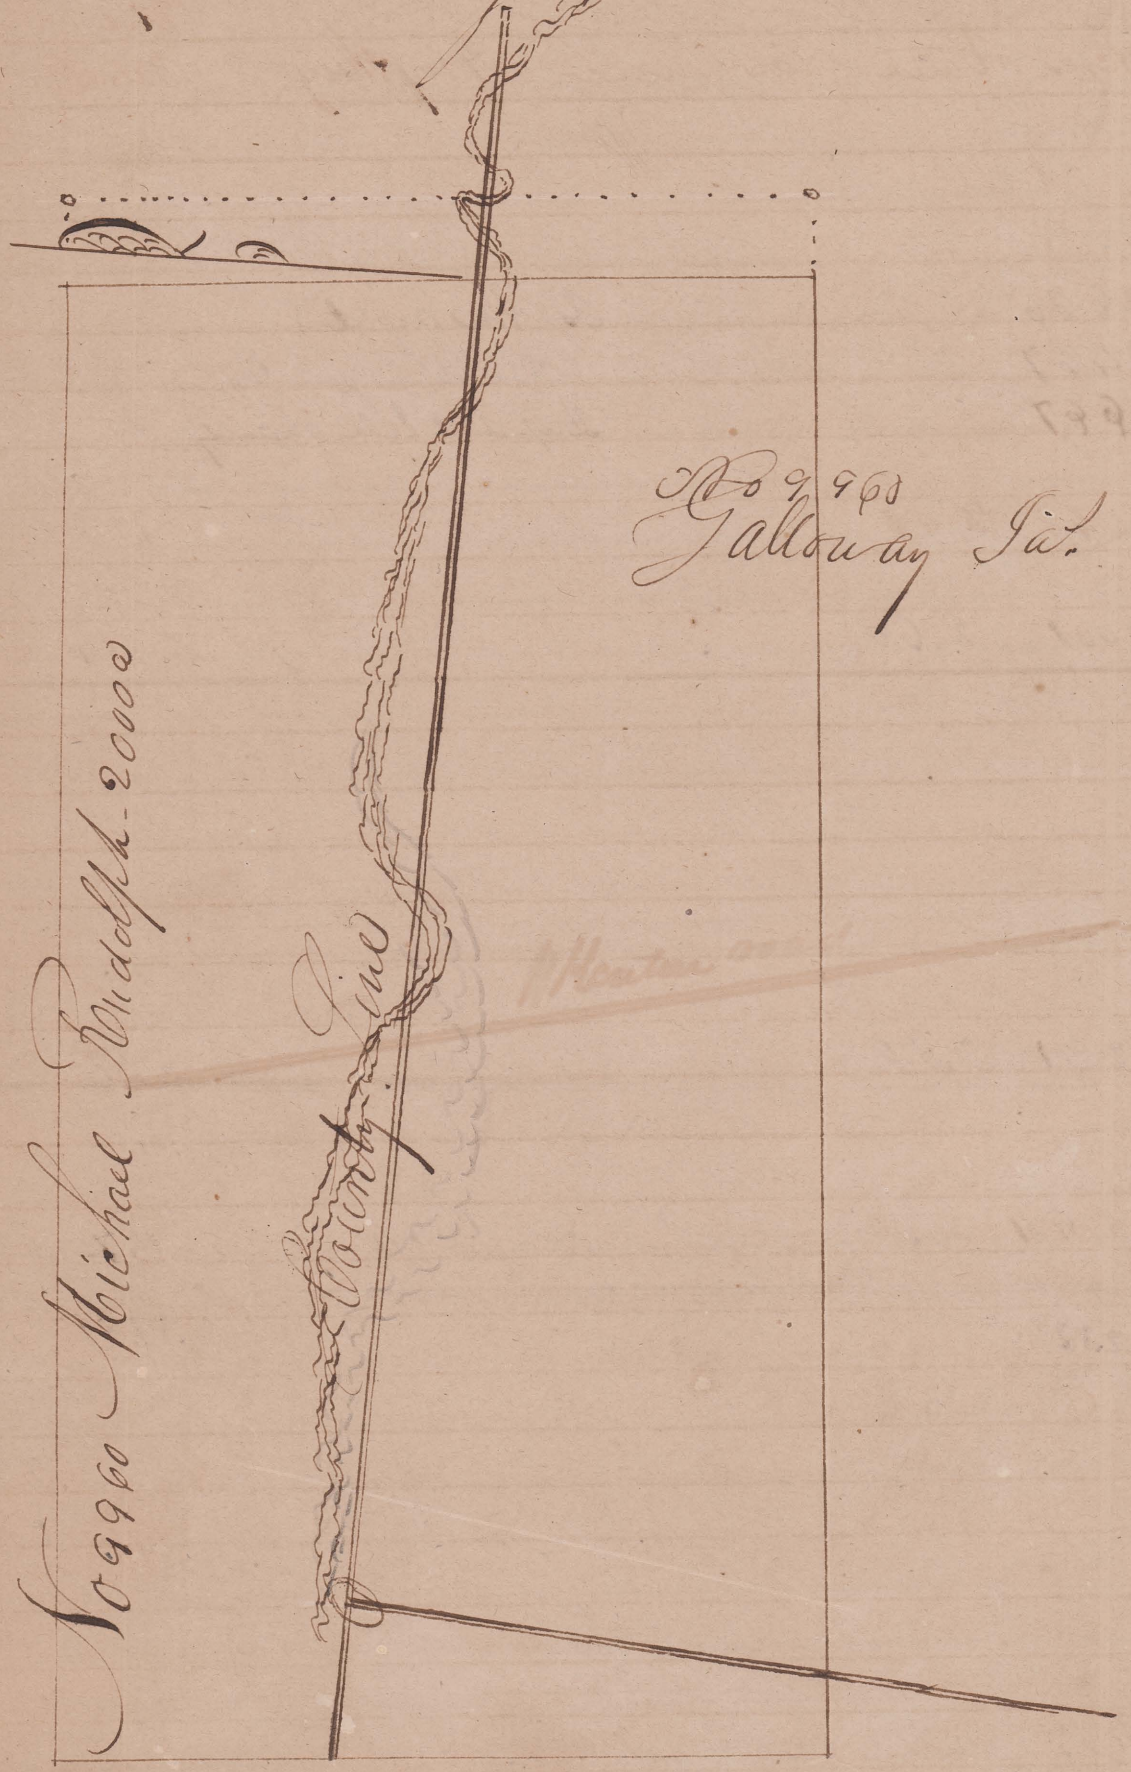 No 9960
Galloway Ia.
No 9960 Michael Rudolph - 2000a
County Line